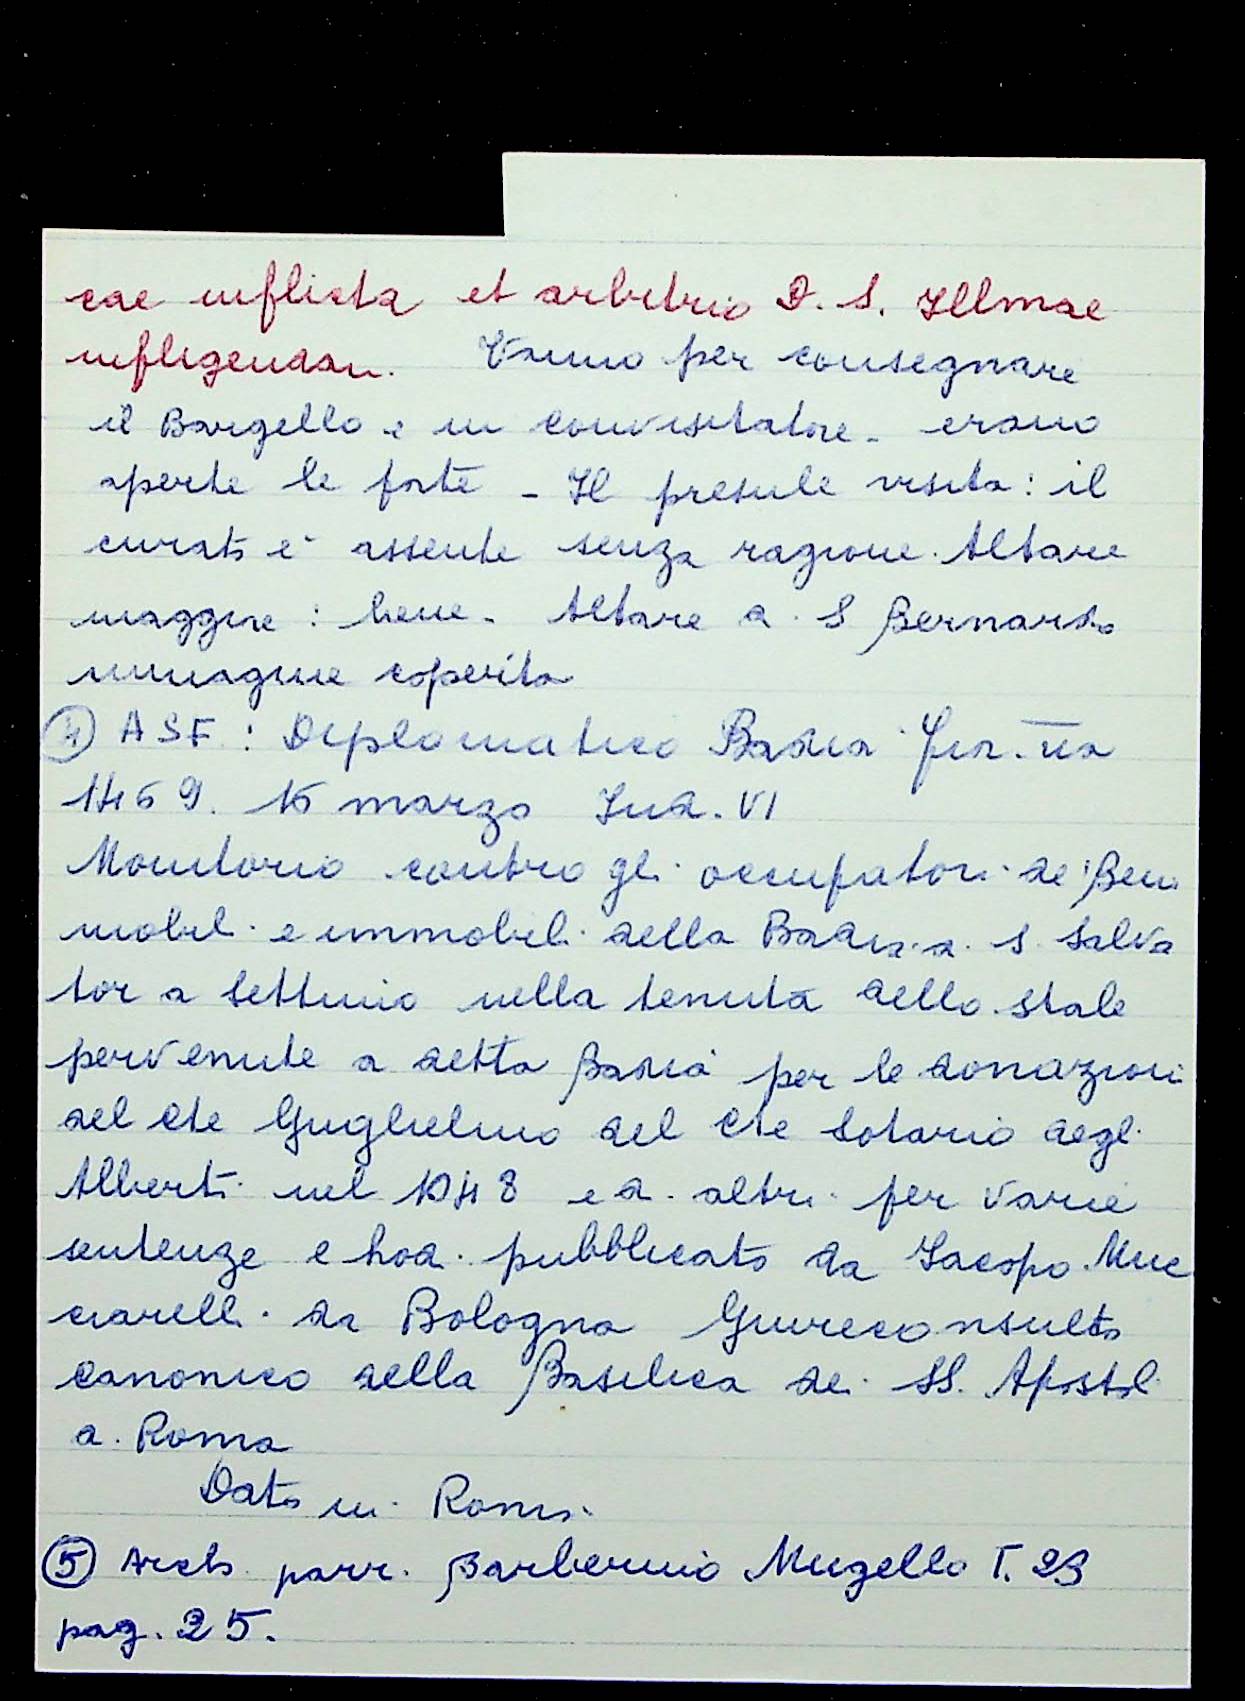 cae inflicta et arbitrio D. S. Illmae
infligendam. Vanno per consegnare
il Bargello e un convisitatore - erano
aperte le porte - Il presule visita: il
curato è assente senza ragione. Altare
maggiore: bene - Altare a S Bernardo
immagine coperita
④ ASF: Diplomatico Badia Fior.na
1469. 16 marzo Ind. VI
Monitorio contro gli occupatori de' Beni
mobili e immobili della Badia a S. Salva
tor a Settimo nella tenuta dello Stale
pervenute a detta Badia per le donazioni
del Cte Guglielmo del Cte Lotario degli
Alberti nel 1048 e d. altri per varie
sentenze e hod. pubblicato da Jacopo Muc
ciarelli da Bologna Giureconsulto
canonico della Basilica dei SS. Apostoli
a Roma
Dato in Roma.
⑤ Arch. parr. Barberino Mugello T. 23
pag. 25.